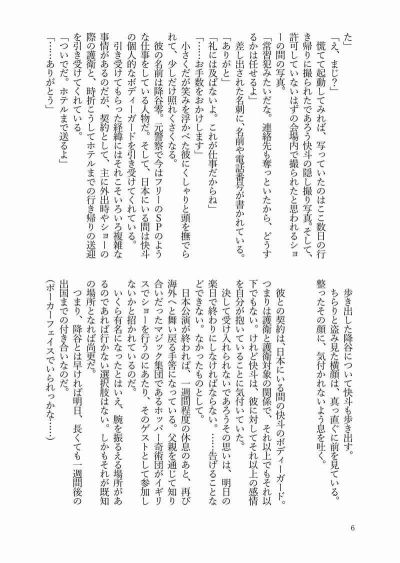 た」
「え、まじ？」
　慌てて起動してみれば、写っていたのはここ数日の行
き帰りに撮られたであろう快斗の隠し撮り写真。そして、
許可していないはずの会場内で撮られたと思われるショ
ーの間の写真。
「常習犯みたいだな。連絡先も奪っといたから、どうす
るかは任せるよ」
　差し出された名刺に、名前や電話番号が書かれている。
「ありがと」
「礼には及ばないよ。これが仕事だからね」
「……お手数をおかけします」
　小さくだが笑みを浮かべた彼にくしゃりと頭を撫でら
れて、少しだけ照れくさくなる。
　彼の名前は降谷零。元警察で今はフリーのＳＰのよう
な仕事をしている人物だ。そして、日本にいる間は快斗
の個人的なボディーガードを引き受けてくれている。
　引き受けてもらった経緯にはそれこそいろいろ複雑な
事情があるのだが、契約として、主に外出時やショーの
際の護衛と、時折こうしてホテルまでの行き帰りの送迎
を引き受けてくれている。
「ついでだ。ホテルまで送るよ」
「……ありがとう」
　歩き出した降谷について快斗も歩き出す。
　ちらりと盗み見た横顔は、真っ直ぐに前を見ている。
整ったその顔に、気付かれないよう息を吐く。
　彼との契約は、日本にいる間の快斗のボディーガード。
つまりは護衛と護衛対象の関係で、それ以上でもそれ以
下でもない。けれど快斗は、彼に対してそれ以上の感情
を自分が抱いていることに気付いていた。
　決して受け入れられないであろうその思いは、明日の
楽日で終わりにしなければならない。……告げることな
どできない。なかったものとして。
　日本公演が終われば、一週間程度の休息のあと、再び
海外へと舞い戻る手筈になっている。父親を通じて知り
合いだったマジック集団であるホッパー奇術団がイギリ
スでショーを行うのにあたり、そのゲストとして参加し
ないかと招かれているのだ。
　いくら有名になったとはいえ、腕を振るえる場所があ
るのであれば行かない選択肢はない。しかもそれが既知
の場所となれば尚更だ。
　つまり、降谷とは早ければ明日、長くても一週間後の
出国までの付き合いなのだ。
（ポーカーフェイスでいられっかな……）
6